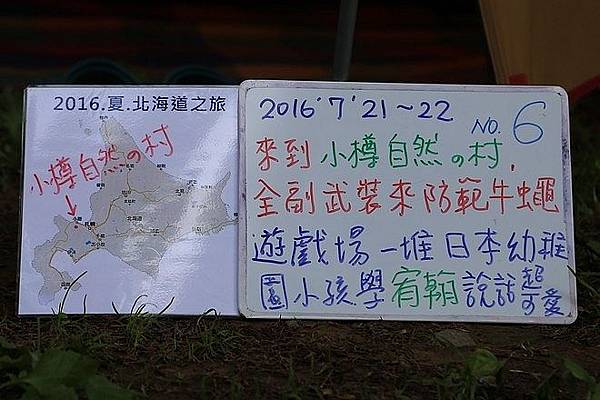 2016.夏.北海道之旅
小樽自然の村
2016'7'21~22
NO. 6
來到小樽自然の村,
全副武裝來防範牛蠅
遊戲場一堆日本幼稚
園小孩學宥翰說話超可愛